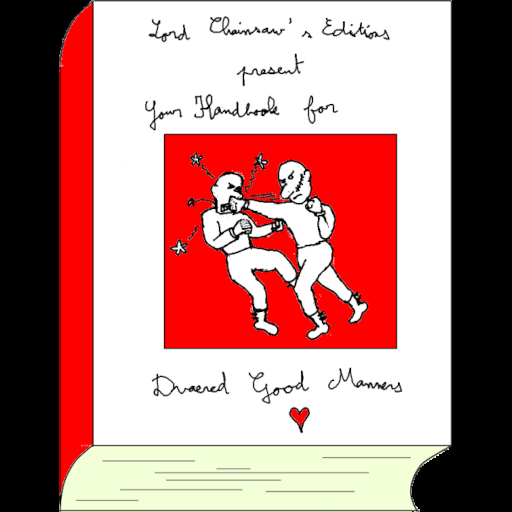 Lord Chainsaw's Editions
present
Your Handbook for
Dvaered Good Manners